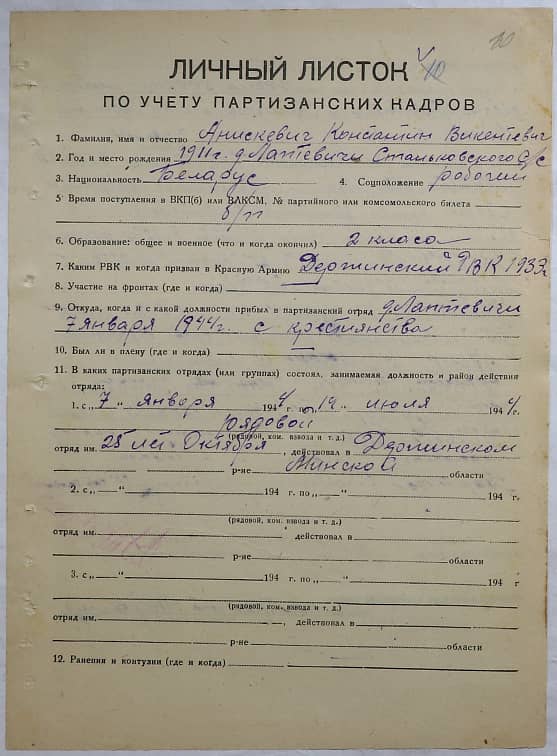 10
ЛИЧНЫЙ ЛИСТОК 10
ПО УЧЕТУ ПАРТИЗАНСКИХ КАДРОВ
1. Фамилия, имя и отчество Анискевич Константин Викентевич
2. Год и место рождения 1911 г. д Лаптевичи Станьковского с/с
3. Национальность Беларус 4. Соцположение рабочий
5. Время поступления в ВКП(б) или ВЛКСМ, № партийного или комсомольского билета
б/п
6. Образование: общее и военное (что и когда окончил) 2 класа
7. Каким РВК и когда призван в Красную Армию Держинский РВК 1933
8. Участие на фронтах (где и когда)
9. Откуда, когда и с какой должности прибыл в партизанский отряд д Лаптевичи
7 января 1944 г. с крестиянства
10. Был ли в плену (где и когда) —
11. В каких партизанских отрядах (или группах) состоял, занимаемая должность и район действия
отряда:
1. с „7" января 1944 г. по „14" июля 1944 г.
рядовой
(рядовой, ком. взвода и т. д.)
отряд им. 25 лет Октября, действовал в Держинском
р-не Минской области
2. с „ — " 194 г. по „ — " 194 г.
(рядовой, ком. взвода и т. д.)
отряд им. , действовал в
р-не области
3. с „ — " 194 г. по „ — " 194 г
(рядовой, ком. взвода и т. д.)
отряд им. , действовал в
р-не области
12. Ранения и контузии (где и когда)